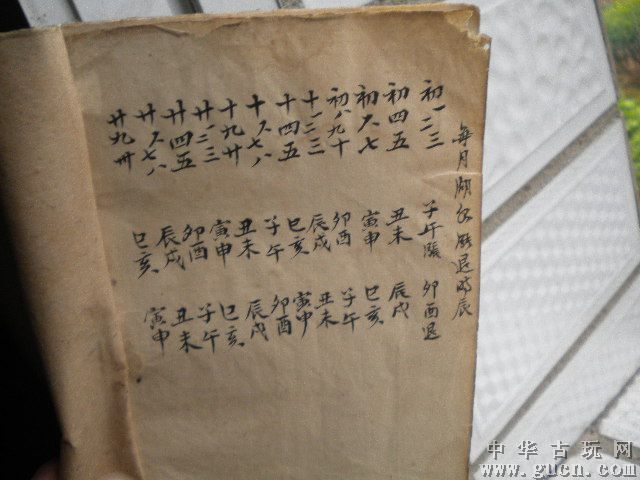 每月潮漲退時辰
初一二三 子午漲 卯酉退
初四五 丑未 辰戌
初六七 寅申 巳亥
初八九十 卯酉 子午
十一二三 辰戌 丑未
十四五 巳亥 寅申
十六七八 子午 卯酉
十九廿 丑未 辰戌
廿一二三 寅申 巳亥
廿四五 卯酉 子午
廿六七八 辰戌 丑未
廿九卅 巳亥 寅申
中华古玩网
www.gucn.com